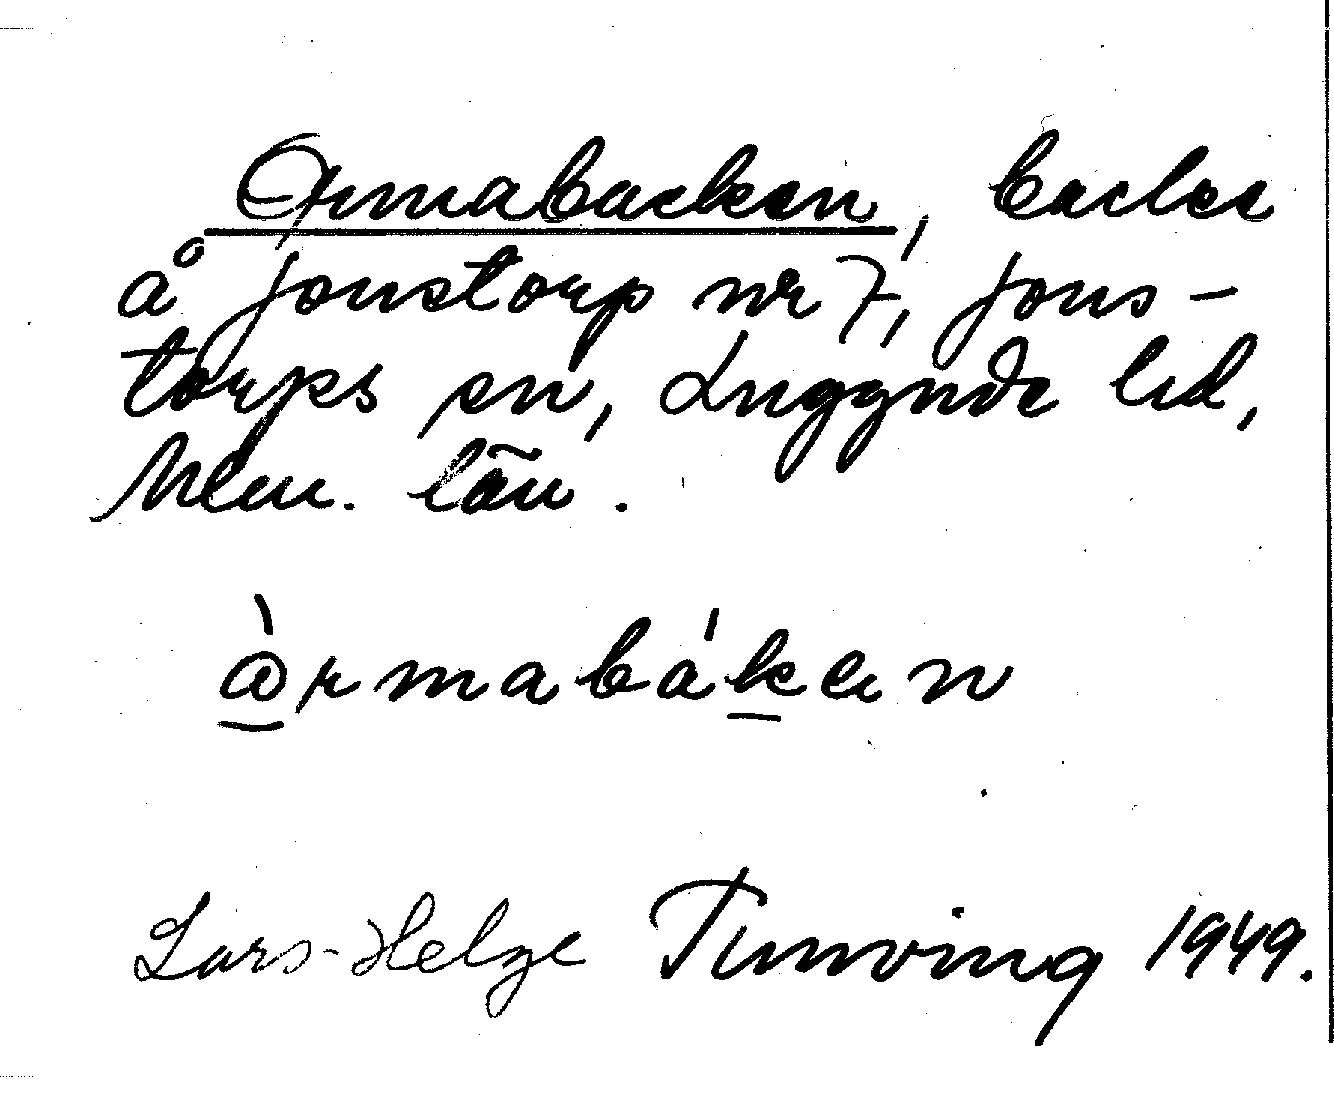 Ormabacken, backe
å Jonstorp nr 7, Jons-
torps sn, Luggude hd,
Mlm. län.
òrmabákan
Lars-Helge Tunving 1949.